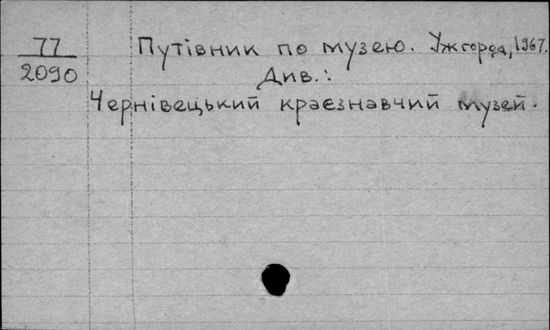 77
2090
Путівник по музею. Ужгород, 1967.
Див.:
Чернівецький краєзнавчий музей.